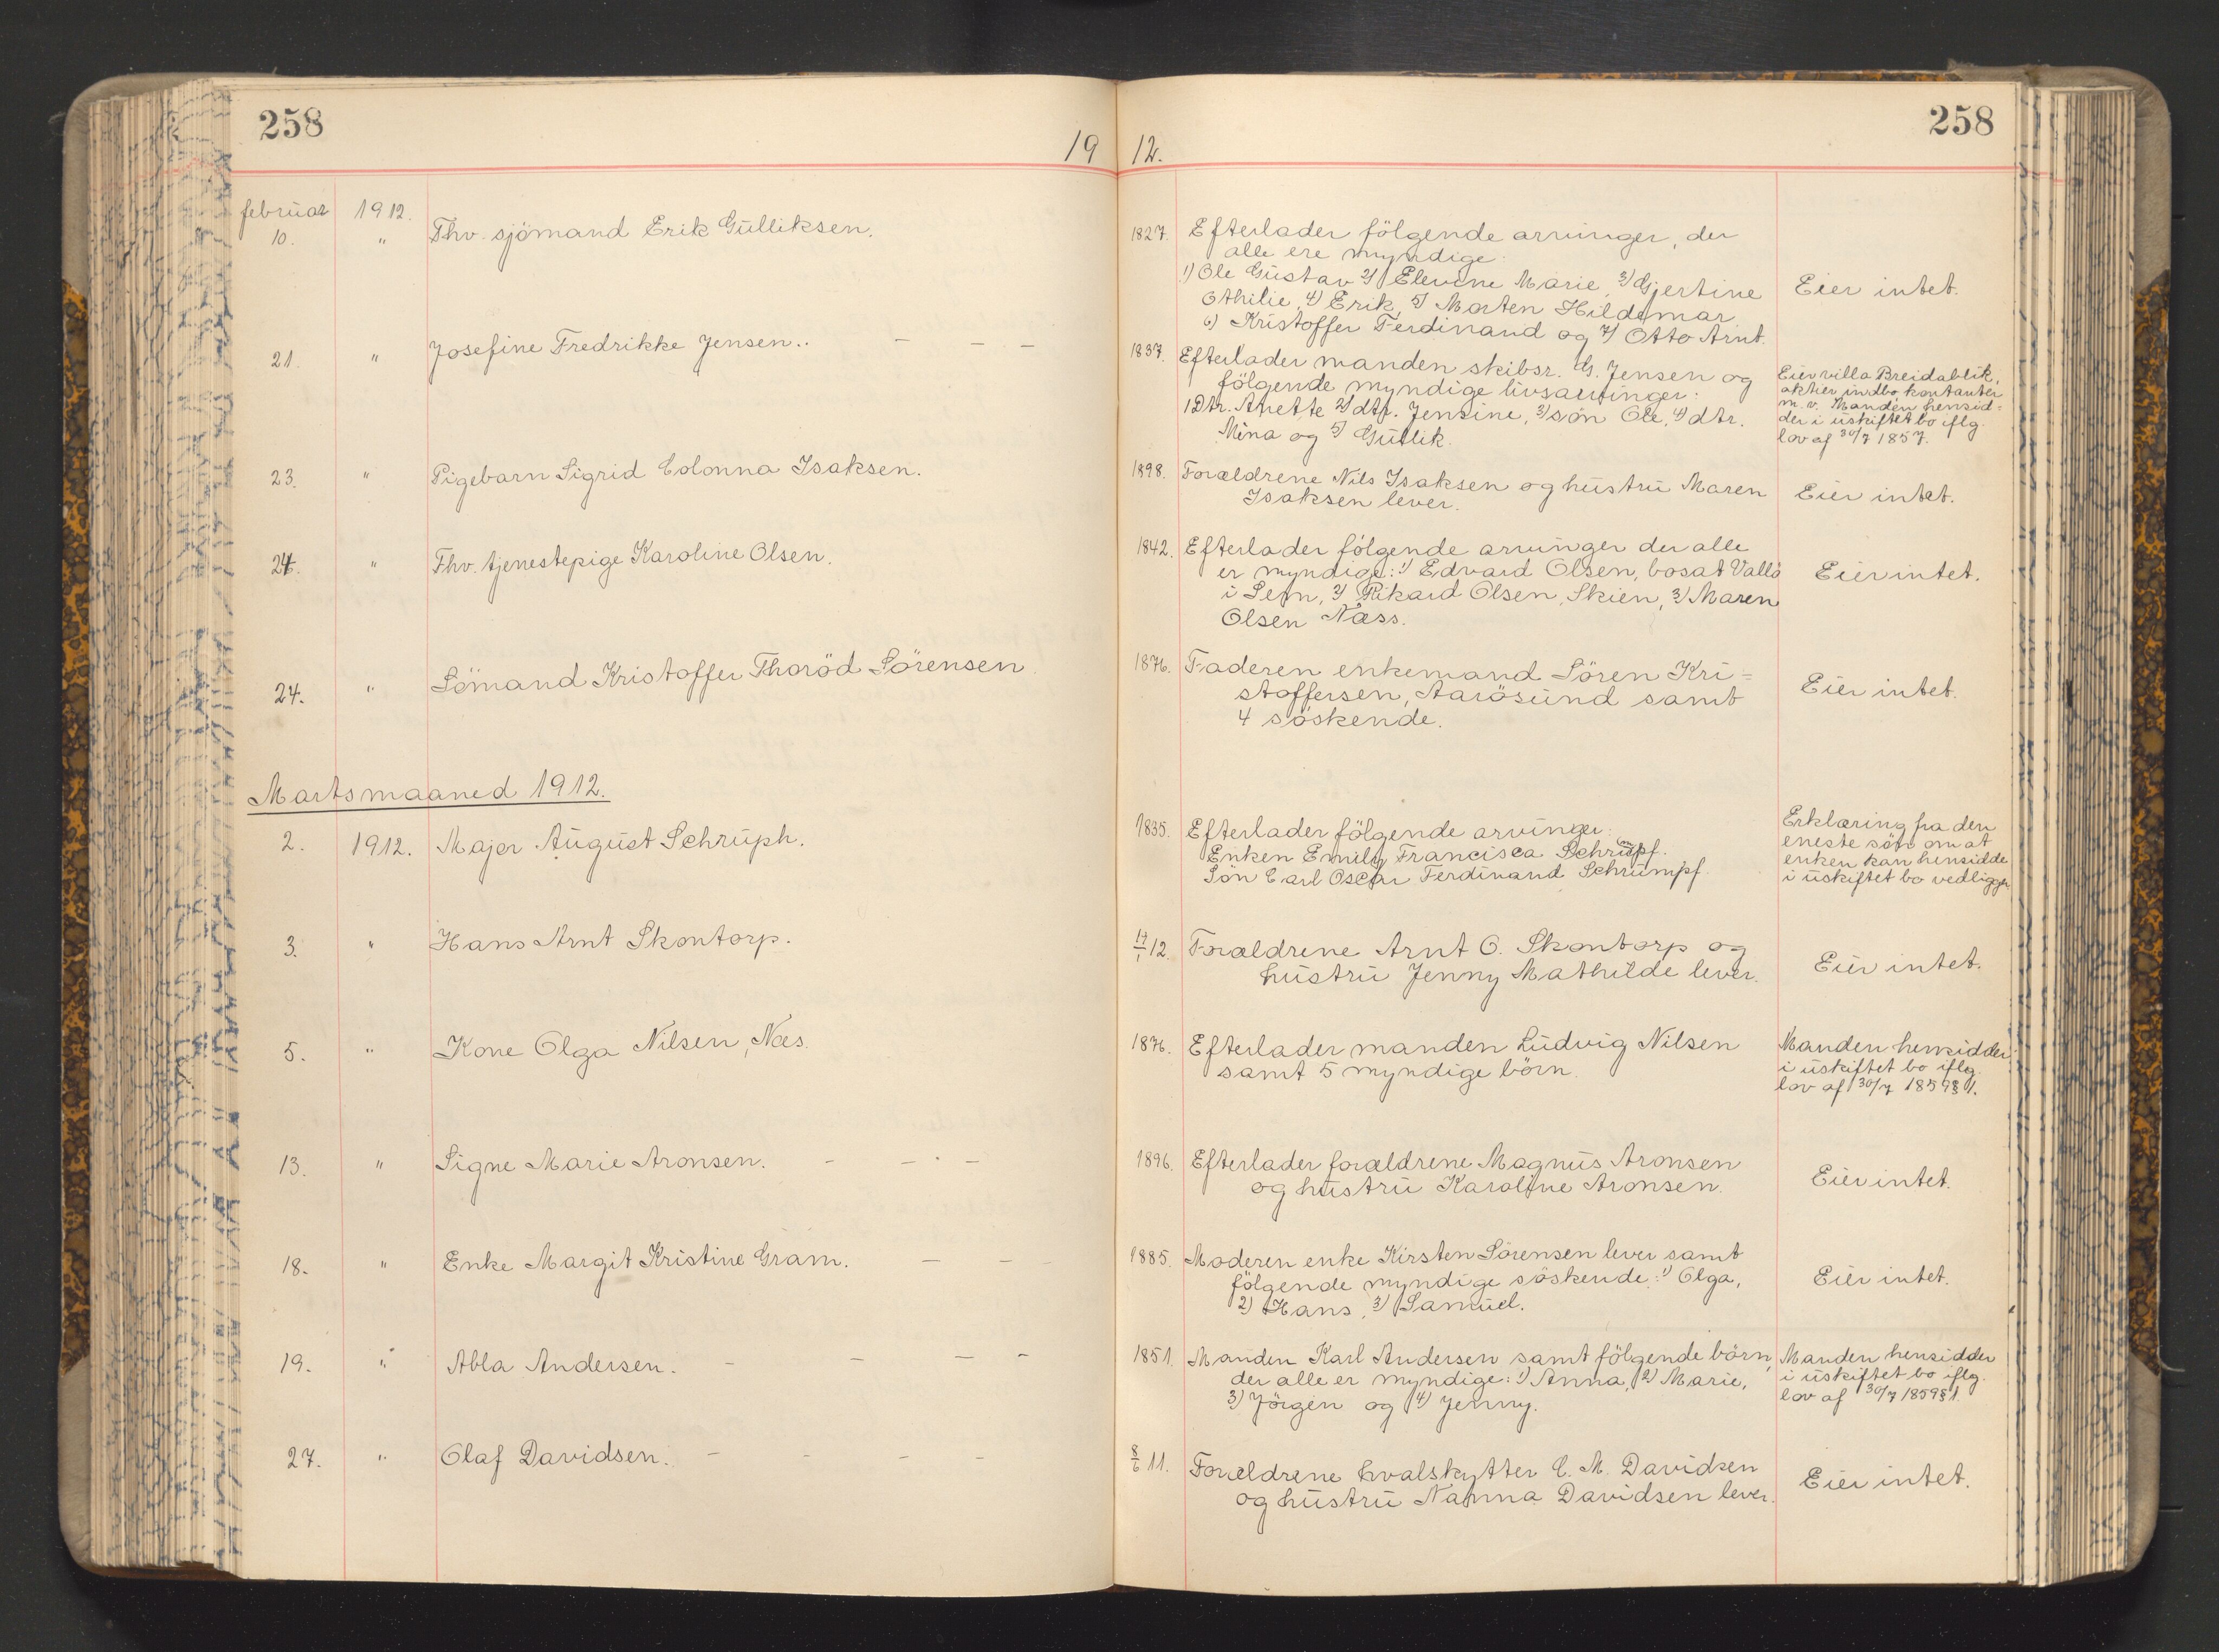 258
19 12.
258
februar 1912.
10. " Fhv. sjömand Erik Gulliksen.
1827. Efterlader följende arvinger, der
alle ere myndige:
1) Ole Gustav 2) Elevine Marie, 3) Gjertine
Othilie, 4) Erik, 5) Morten Hildemar
6) Kristoffer Ferdinand og 7) Otto Arnt.
Eier intet.
21. " Josefine Fredrikke Jensen.. – – –
1837. Efterlader manden skibsr. G. Jensen og
fölgende myndige livsarvinger:
1 Dtr. Anette 2) dtr. Jensine, 3) sön Ole, 4) dtr.
Mina og 5) Gullik.
Eier villa Breidablik,
aktier, indbo, kontanter
m. v. Manden hensid=
der i uskiftet bo iflg.
lov af 30/7 1857.
23. " Pigebarn Sigrid Colonna Isaksen.
1898. Forældrene Nils Isaksen og hustru Maren
Isaksen lever.
Eier intet.
24. " Fhv. tjenestepige Karoline Olsen.
1842. Efterlader fölgende arvinger der alle
er myndige: 1) Edvard Olsen, bosat Vallö
i Sem, 2) Rikard Olsen, Skien, 3) Maren
Olsen Næss.
Eier intet.
24. " Sömand Kristoffer Thoröd Sörensen
1876. Faderen enkemand Sören Kri=
stoffersen, Aarösund samt
4 söskende.
Eier intet.
Martsmaaned 1912.
2. 1912. Major August Schruph.
1835. Efterlader fölgende arvinger:
Enken Emily Francisca Schrumpf.
Sön Carl Oscar Ferdinand Schrumpf.
Erklæring fra den
eneste sön om at
enken kan hensidde
i uskiftet bo vedligger
3. " Hans Arnt Skontorp.
17/1 12. Forældrene Arnt O. Skontorp og
hustru Jenny Mathilde lever.
Eier intet.
5. " Kone Olga Nilsen, Næs.
1876. Efterlader manden Ludvig Nilsen
samt 5 myndige börn.
Manden hensidder
i uskiftet bo iflg.
lov af 30/7 1859 § 1.
13. " Signe Marie Aronsen. – – –
1896. Efterlader forældrene Magnus Aronsen
og hustru Karoline Aronsen.
Eier intet.
18. " Enke Margit Kristine Gram. – –
1885. Moderen enke Kirsten Sörensen lever samt
fölgende myndige söskende: 1) Olga,
2) Hans, 3) Samuel.
Eier intet.
19. " Abla Andersen. – – – –
1851. Manden Karl Andersen samt fölgende börn,
der alle er myndige: 1) Anna, 2) Marie,
3) Jörgen og 4) Jenny.
Manden hensidder
i uskiftet bo iflg.
lov af 30/7 1859 § 1.
27. " Olaf Davidsen. – – – –
8/6 11. Forældrene hvalskytter C. M. Davidsen
og hustru Nanna Davidsen lever.
Eier intet.